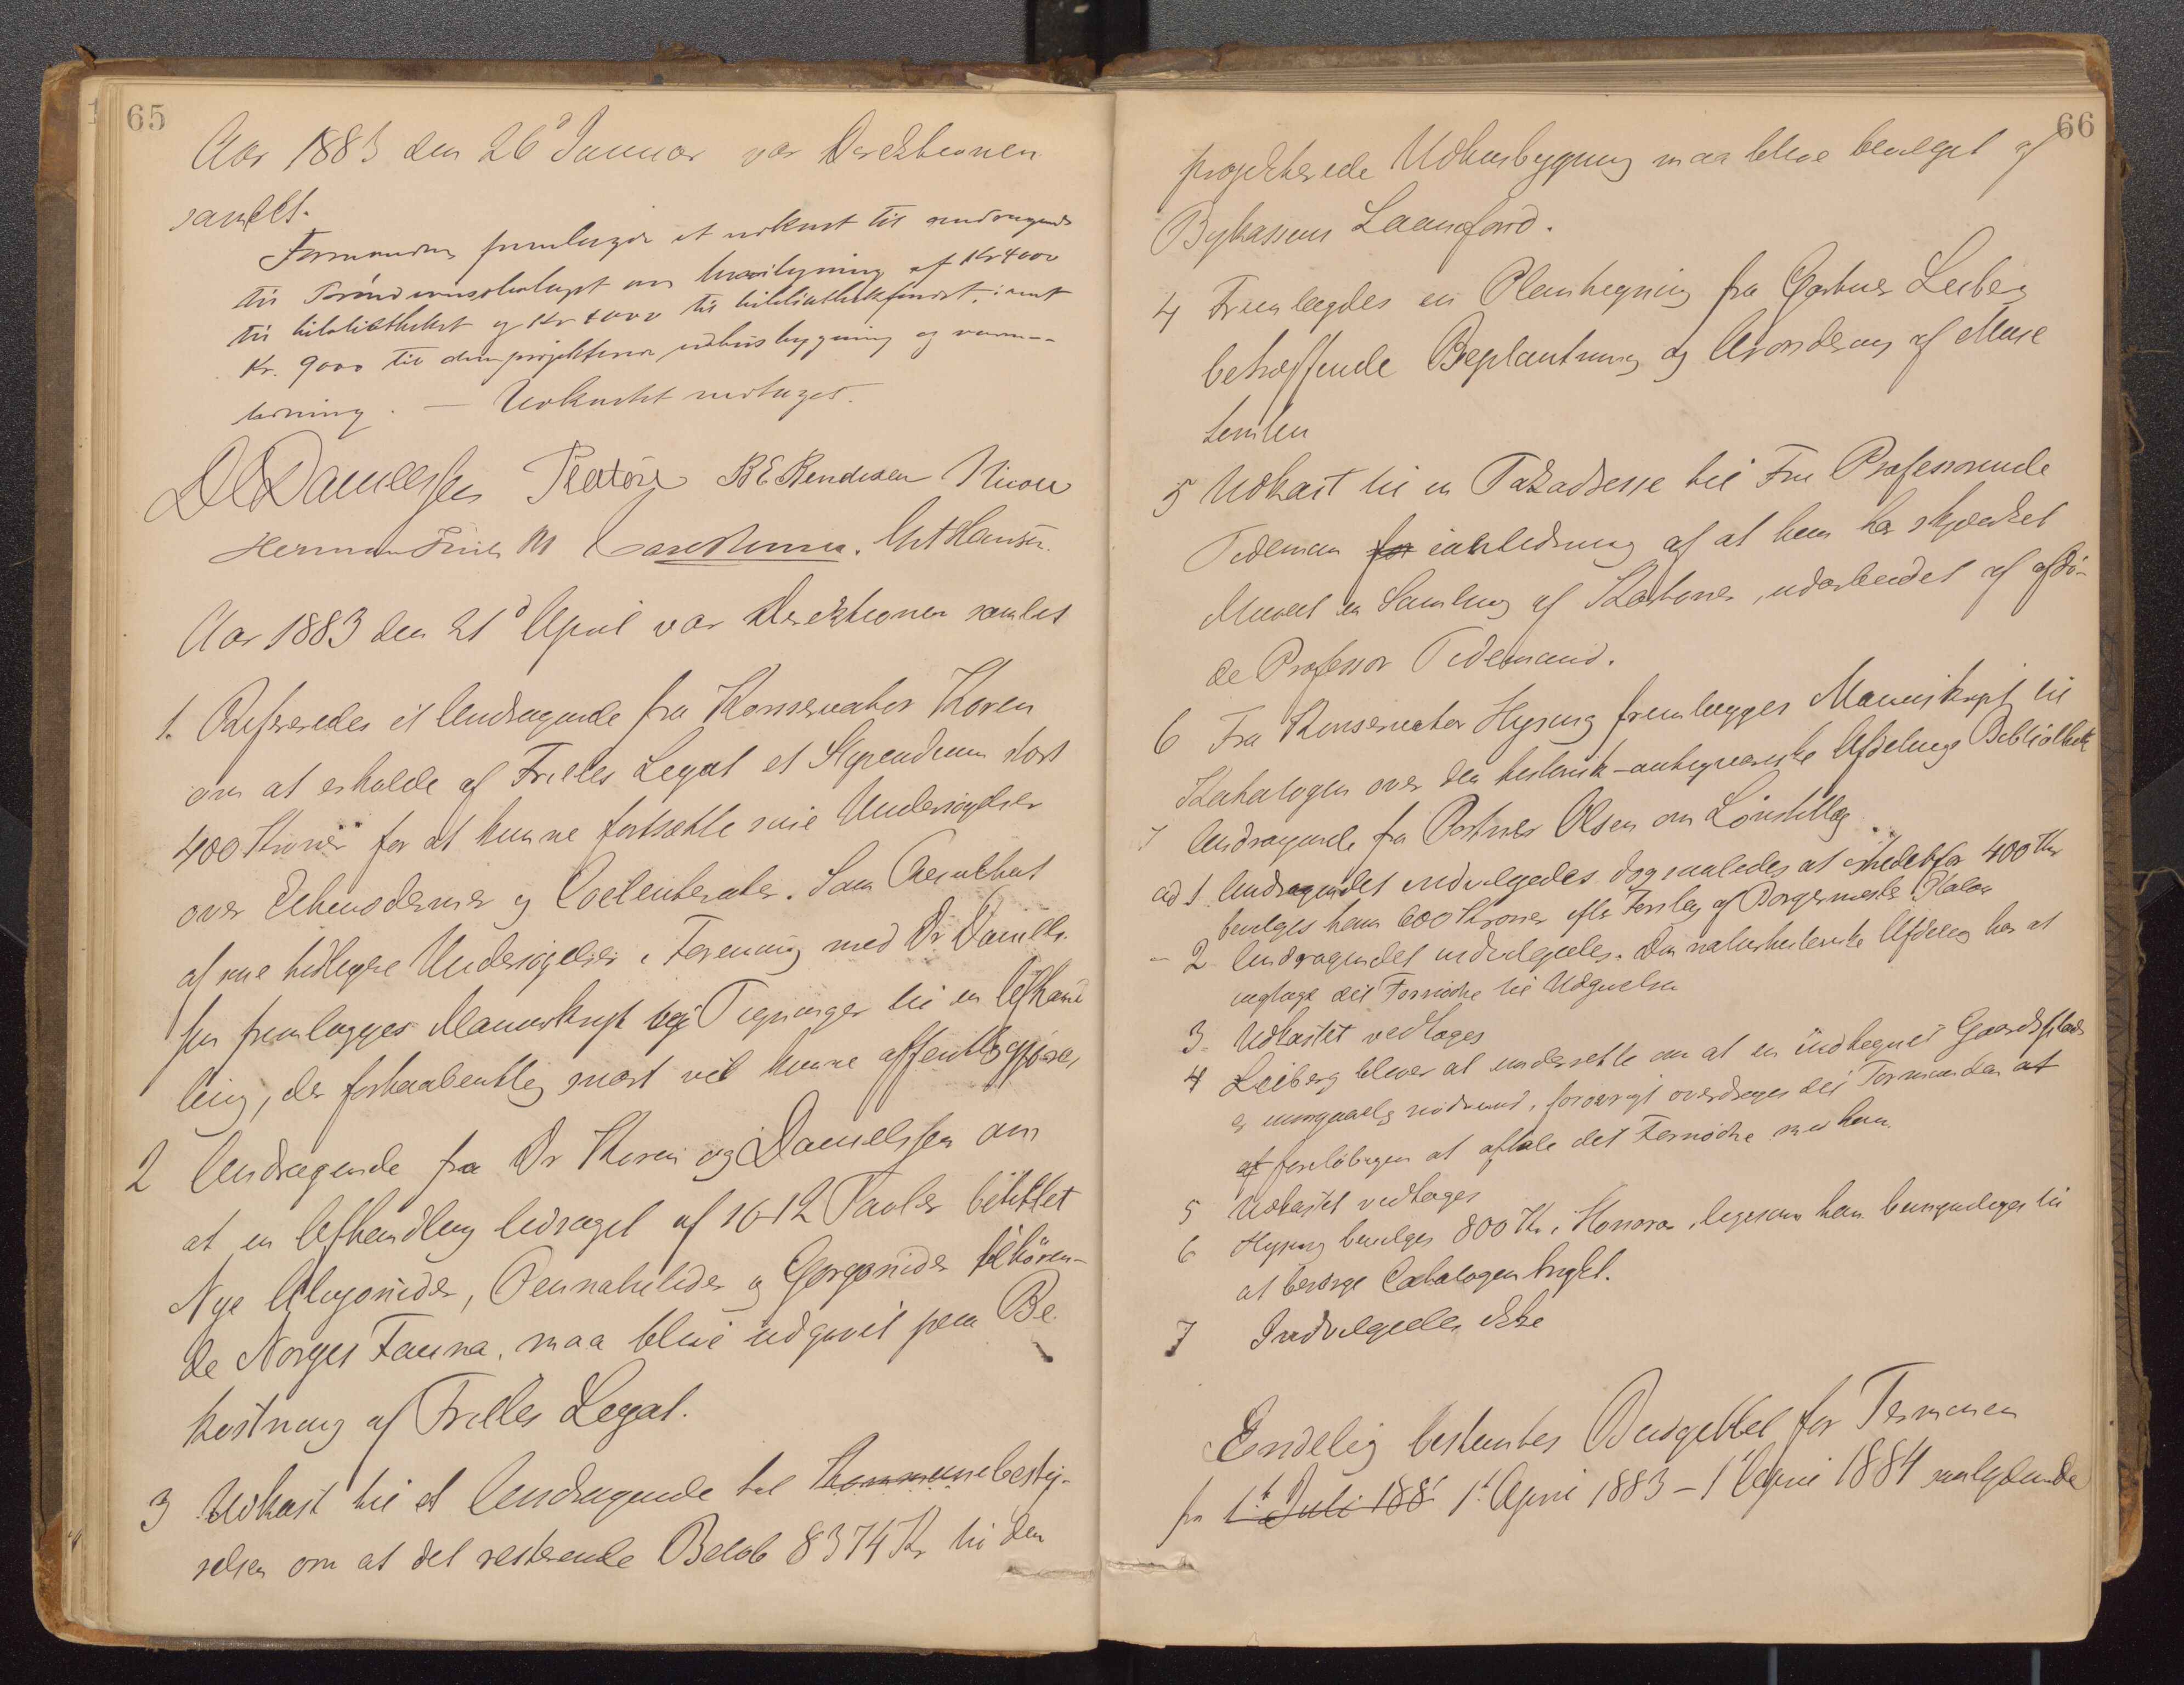 65
Aar 1883 den 26d Januar var Direktionen
samlet.
Formanden fremlagde et udkast til andragende
til Formandsskabet om bevilgning af Kr 4000
til bibliotheket og Kr 4000 til bibliothekfondet, samt
Kr. 9000 til den projekterede udhusbygning og varme-
ledning. — Udkastet vedtaget.
DCDanielssen Prætorius BE Bendixen Nicoll
Herman Friele M Carstens. Chr Hansen.
Aar 1883 den 21d April var Direktionen samlet
1. Refereredes et Andragende fra Konservator Koren
om at erholde af Frieles Legat et Stipendium stort
400 Kroner for at kunne fortsætte sine Undersøgelser
over Echinodermer og Coelenterater. Som Resultat
af sine tidligere Undersøgelser i Forening med Dr Daniels-
sen fremlægges Manuskript og Tegninger til en Afhand
ling, der forhaabentlig snart vil kunne offentliggjøres
2 Andragende fra Dr Koren og Danielssen om
at en Afhandling ledsaget af 10-12 Tavler betitlet
Nye Alcyonider, Pennatulider og Gorgonider tilhören-
de Norges Fauna, maa blive udgivet paa Be
kostning af Frieles Legat.
3 Udkast til et Andragende til Kommunebesty-
relsen om at det resterende Beløb 8374 Kr til den
66
projekterede Udhusbygning maa blive bevilget af
Bykassens Laanefond.
4 Fremlægdes en Plantegning fra Gartner Leiberg
betræffende Beplantning og Arondering af Muse
tomten
5 Udkast til en Takadresse til Fru Professorinde
Tidemand for i anledning af at hun har skjænket
Museet en Samling af Kartoner, udarbeidet af afdö-
de Professor Tidemand.
6 Fra Konservator Hysing fremlægges Manuskript til
Katalogen over den historisk-antiqvariske Afdelings Bibliothek
7 Andragende fra Portner Olsen om Löntillæg
ad 1. Andragendet indvilgedes dog saaledes at istedetfor 400 Kr
bevilges ham 600 Kroner efter Forslag af Borgermester Platou
- 2 Andragendet indvilgedes. Den naturhistoriske Afdeling har at
iagttage det Fornödne til Udgivelsen
3. Udkastet vedtages
4 Leiberg bliver at underrette om at en indhegnet Gaardsplads
er uomgjængelig nödvend, forövrigt overdrages det Formanden at
af forelöbigen at aftale det Fornödne med ham.
5 Udkastet vedtages
6 Hysing bevilges 800 Kr i Honorar, ligesom han bemyndiges til
at besörge Catalogen trykt.
7 Indvilgedes ikke
Endelig bestemtes Budgettet for Terminen
fra 1t Juli 188 1t April 1883 – 1t April 1884 saalydende